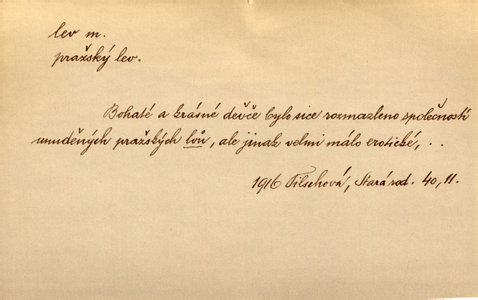 lev m.
pražský lev.
Bohaté a krásné děvče bylo sice rozmazleno společností
unuděných pražských lvů, ale jinak velmi málo erotické, . .
1916 Tilschová, Stará rod. 40, 11.